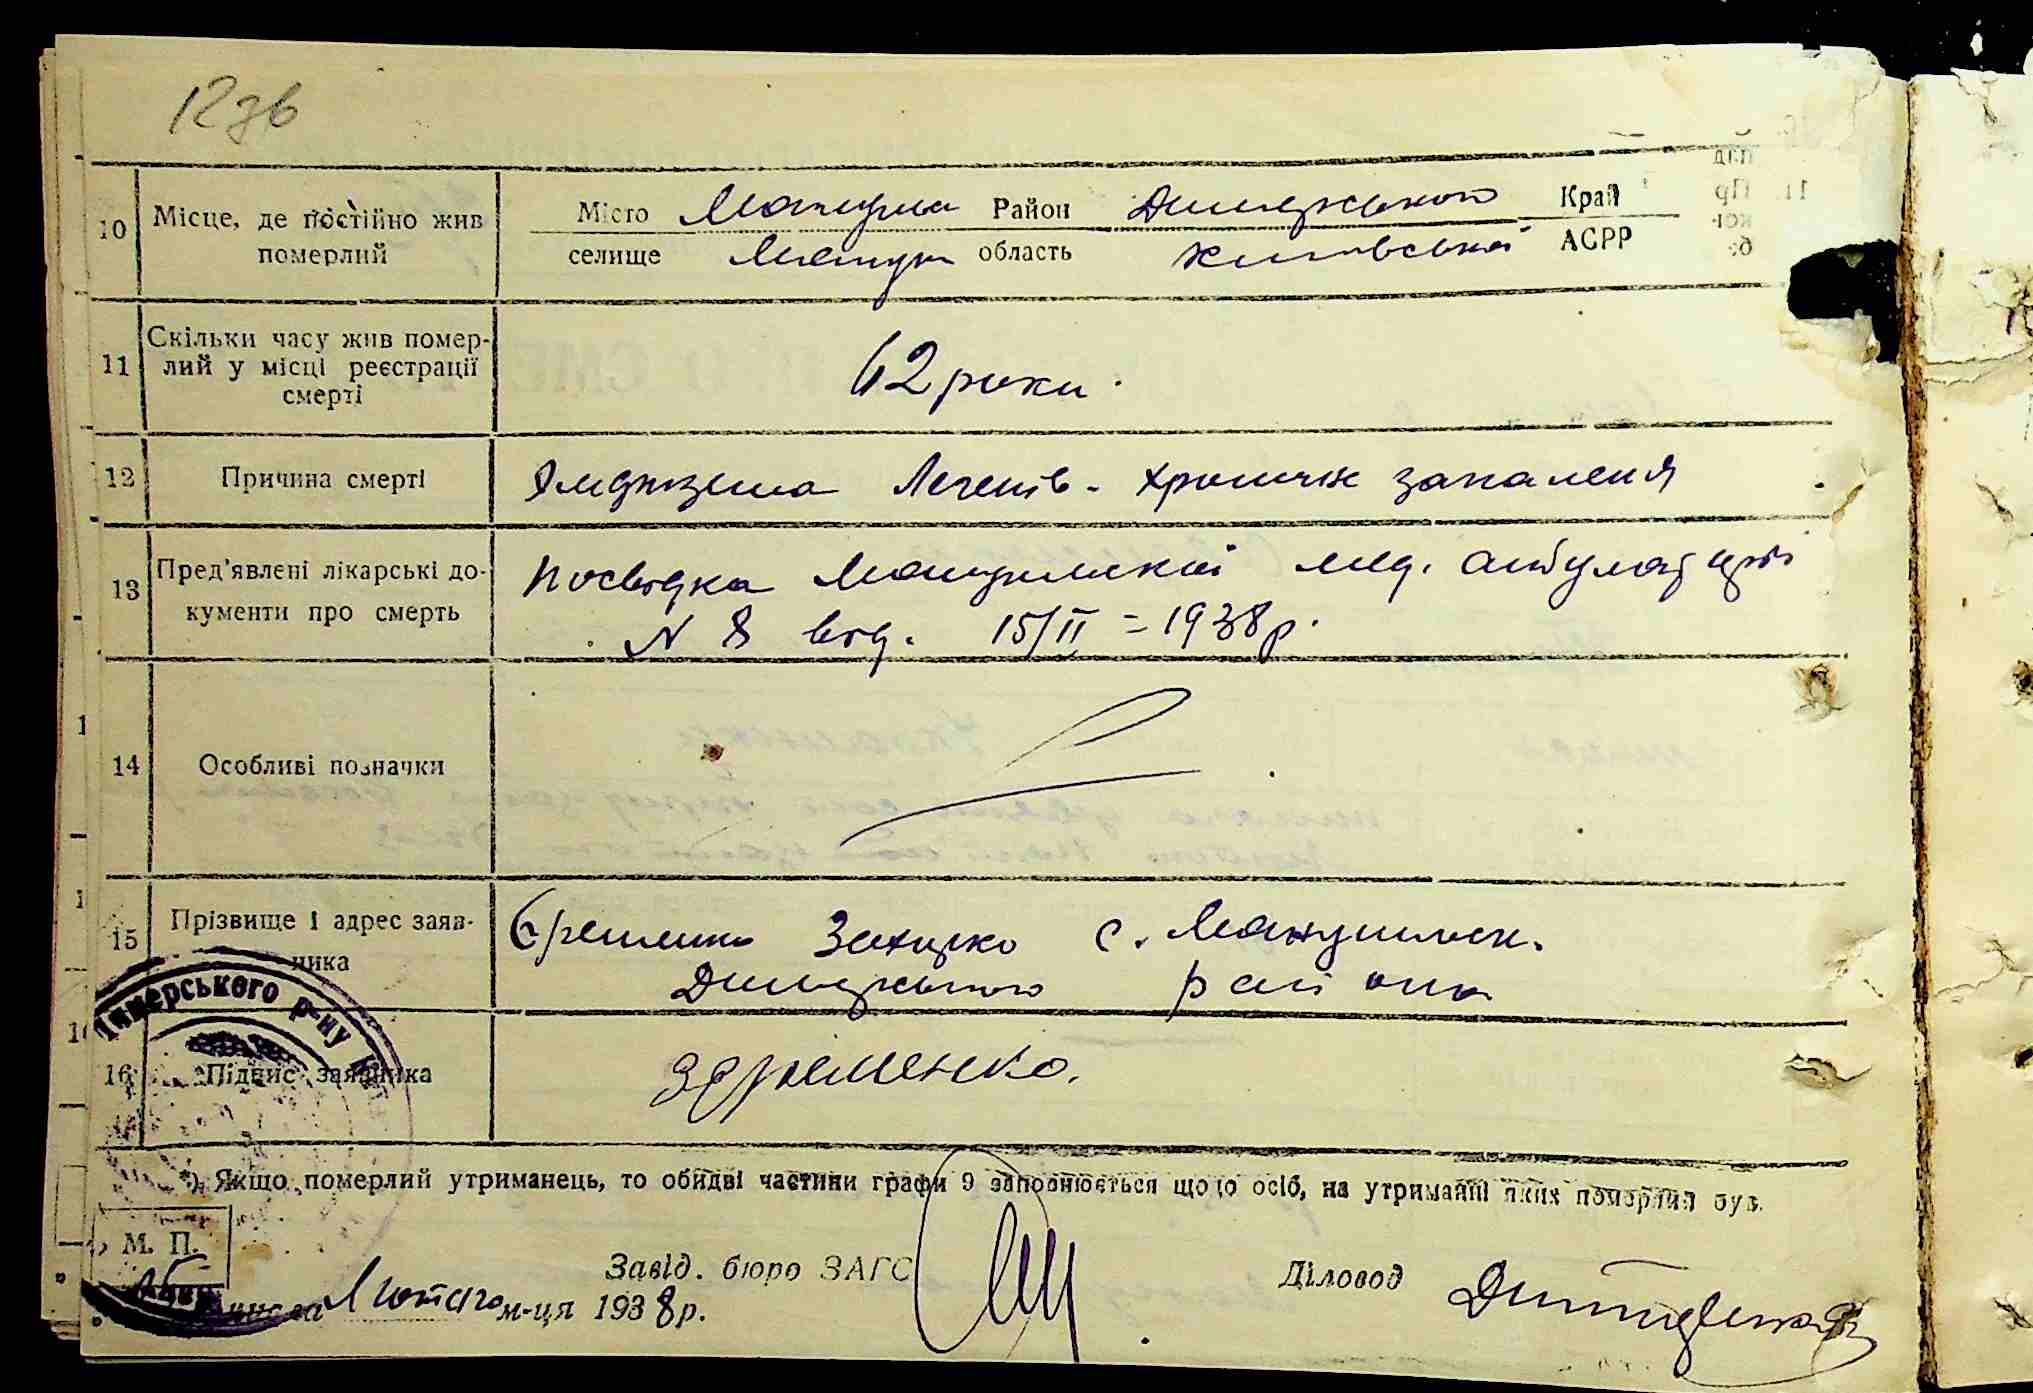 12зв
10 Місце, де постійно жив померлий
Місто Район Димерського Край
селище область Київської АСРР
11 Скільки часу жив помер-
лий у місці реєстрації
смерті
62 роки.
12 Причина смерті
Легенів - запаленя
13 Пред'явлені лікарські до-
кументи про смерть
Посвідка мед. амбулаторії
N 8 від. 15/II = 1938 р.
14 Особливі позначки
15 Прізвище і адрес заяв-
ника
Єременко Захарко с.
Димерського району
16 Підпис заявника
ЗЄременко.
Димерського р-ну
*) Якщо померлий утриманець, то обидві частини графи 9 заповнюється щодо осіб, на утриманні яких померлий був.
М. П.
Завід. бюро ЗАГС
Діловод
числа Лютого м-ця 1938 р.